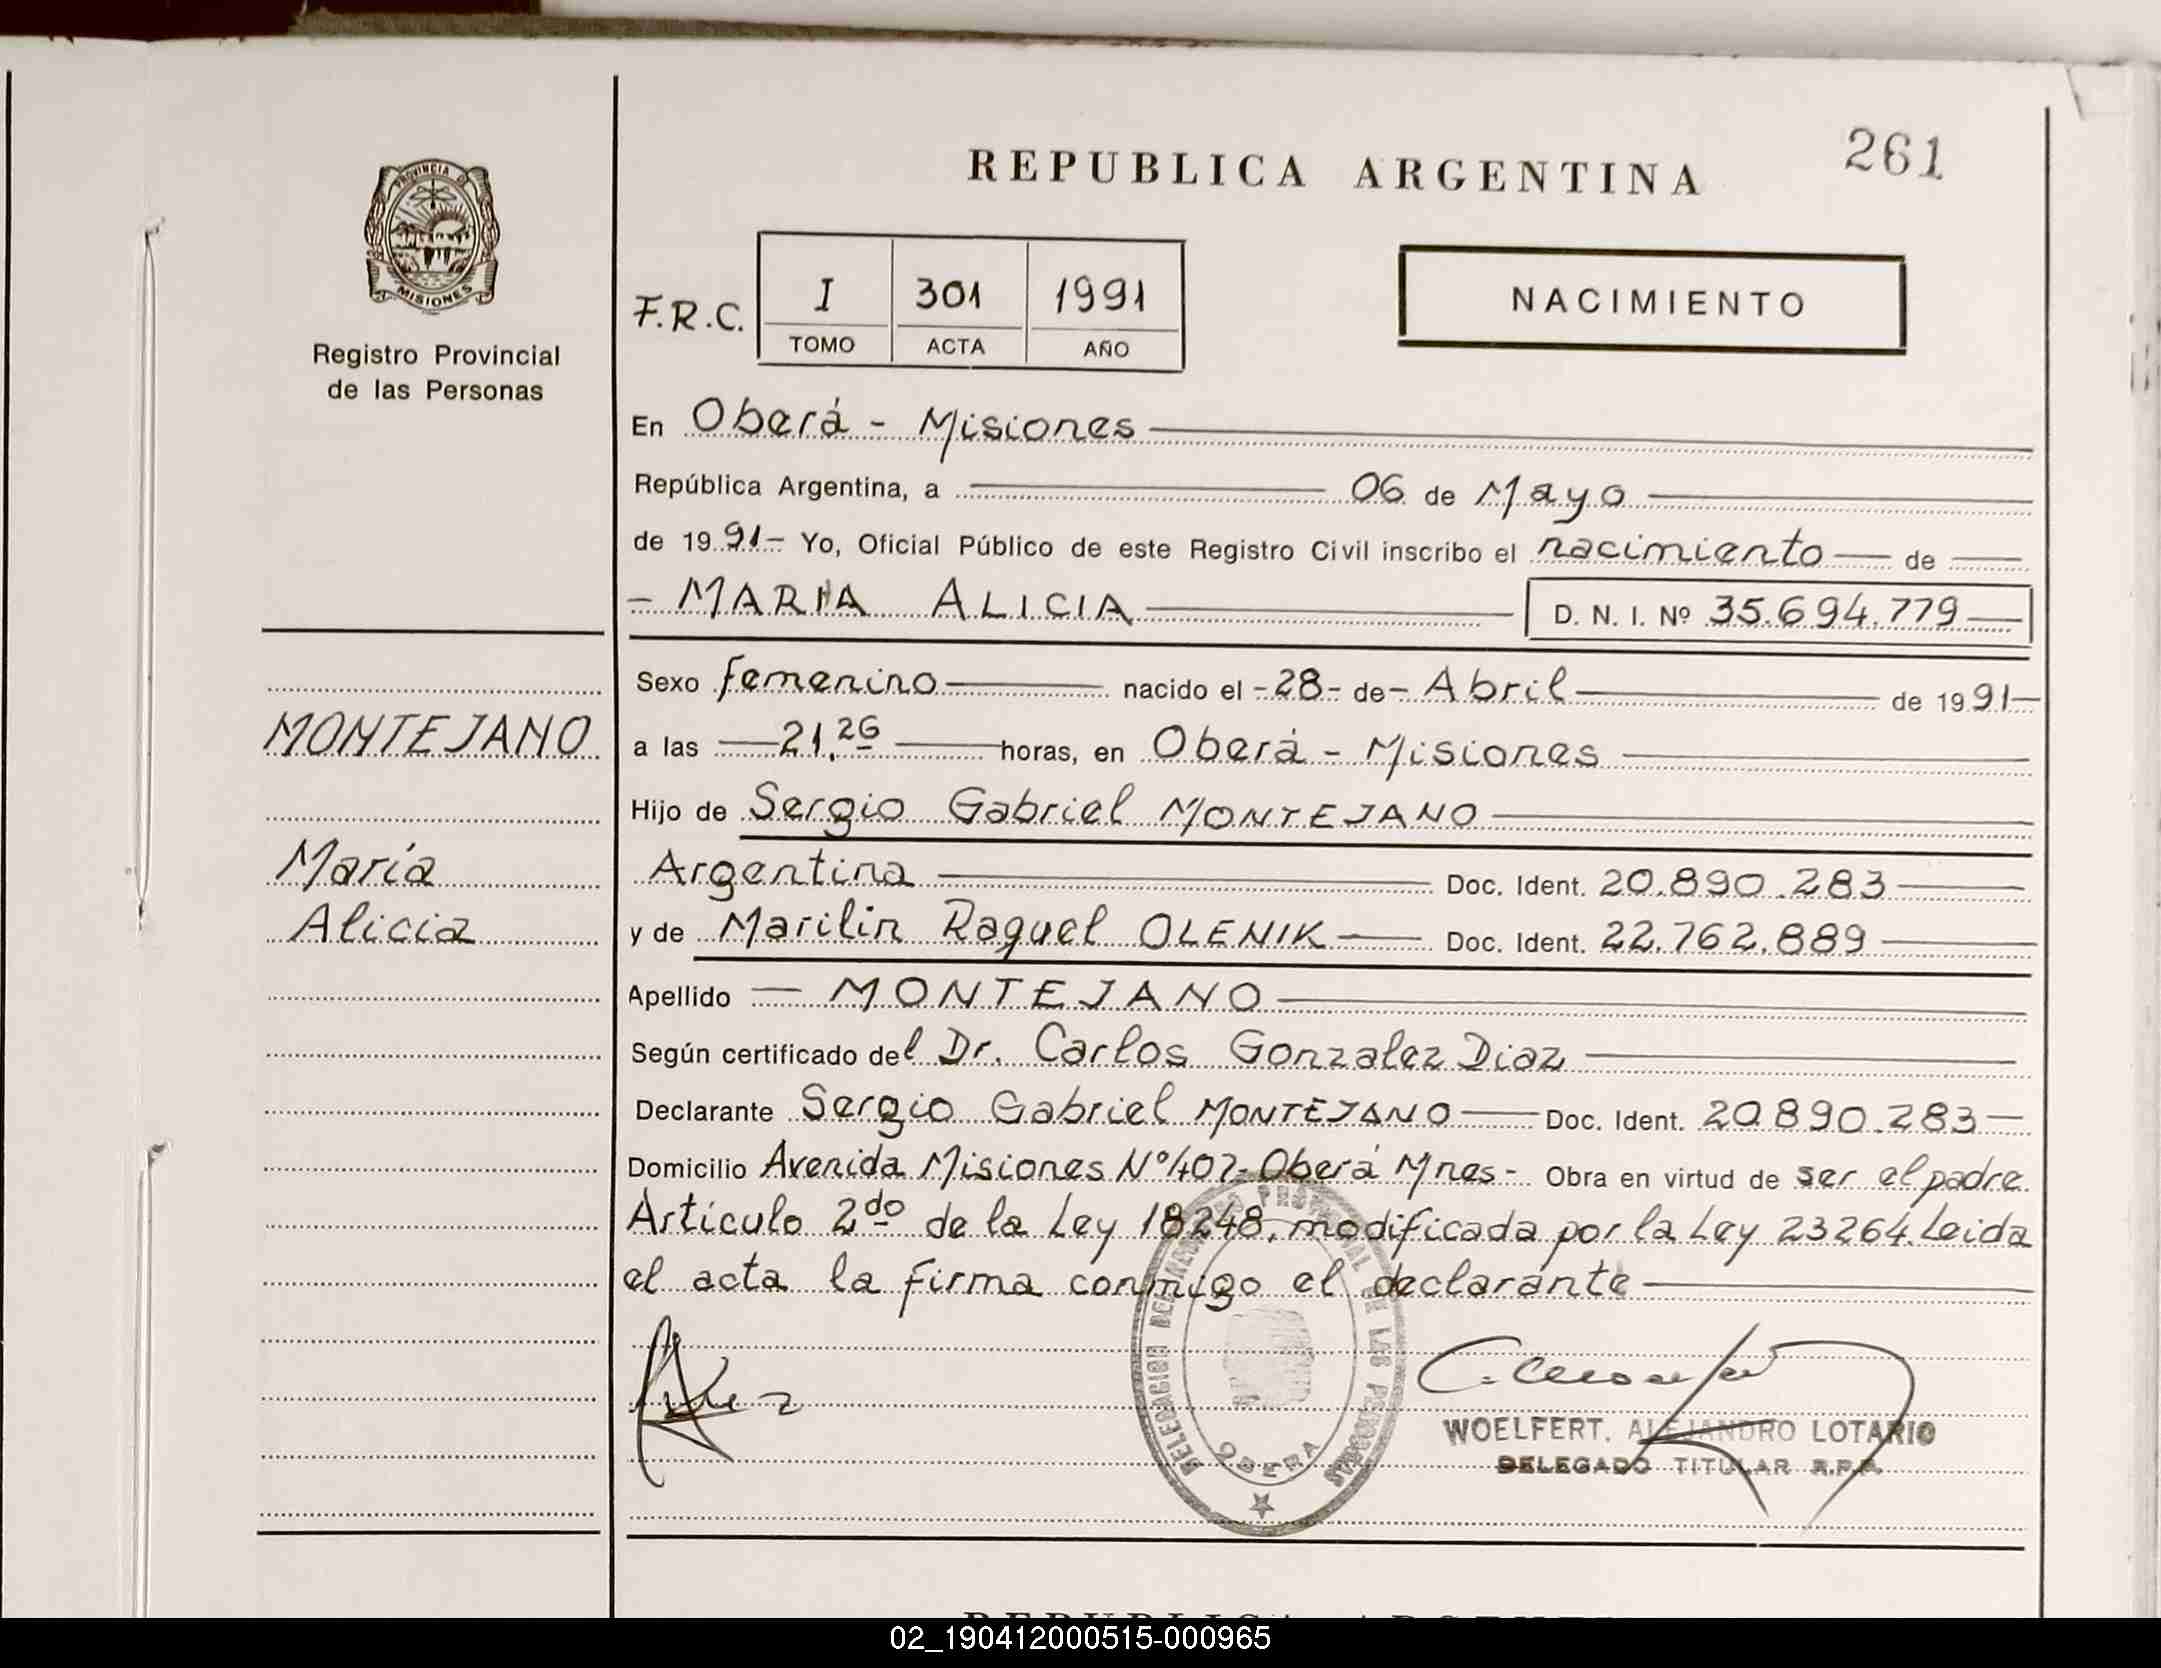 REPUBLICA ARGENTINA
261
PROVINCIA DE
MISIONES
Registro Provincial
de las Personas
F.R.C.
I 301 1991
TOMO ACTA AÑO
NACIMIENTO
En Oberá - Misiones
República Argentina, a 06 de Mayo
de 1991- Yo, Oficial Público de este Registro Civil inscribo el nacimiento de
- MARIA ALICIA D. N. I. Nº 35.694.779
Sexo femenino nacido el -28- de- Abril de 1991-
MONTEJANO
a las 21.26 horas, en Oberá - Misiones
Hijo de Sergio Gabriel MONTEJANO
María
Argentina Doc. Ident. 20.890.283
Alicia
y de Marilin Raquel OLENIK Doc. Ident. 22.762.889
Apellido MONTEJANO
Según certificado del Dr. Carlos Gonzalez Diaz
Declarante Sergio Gabriel MONTEJANO Doc. Ident. 20.890.283
Domicilio Avenida Misiones Nº 407- Oberá Mnes- Obra en virtud de ser el padre
Artículo 2do de la Ley 18248, modificada por la Ley 23264. Leida
el acta la firma conmigo el declarante
DELEGACION DEL REGISTRO PROVINCIAL DE LAS PERSONAS
OBERA
WOELFERT, ALEJANDRO LOTARIO
DELEGADO TITULAR R.P.P.
02_190412000515-000965